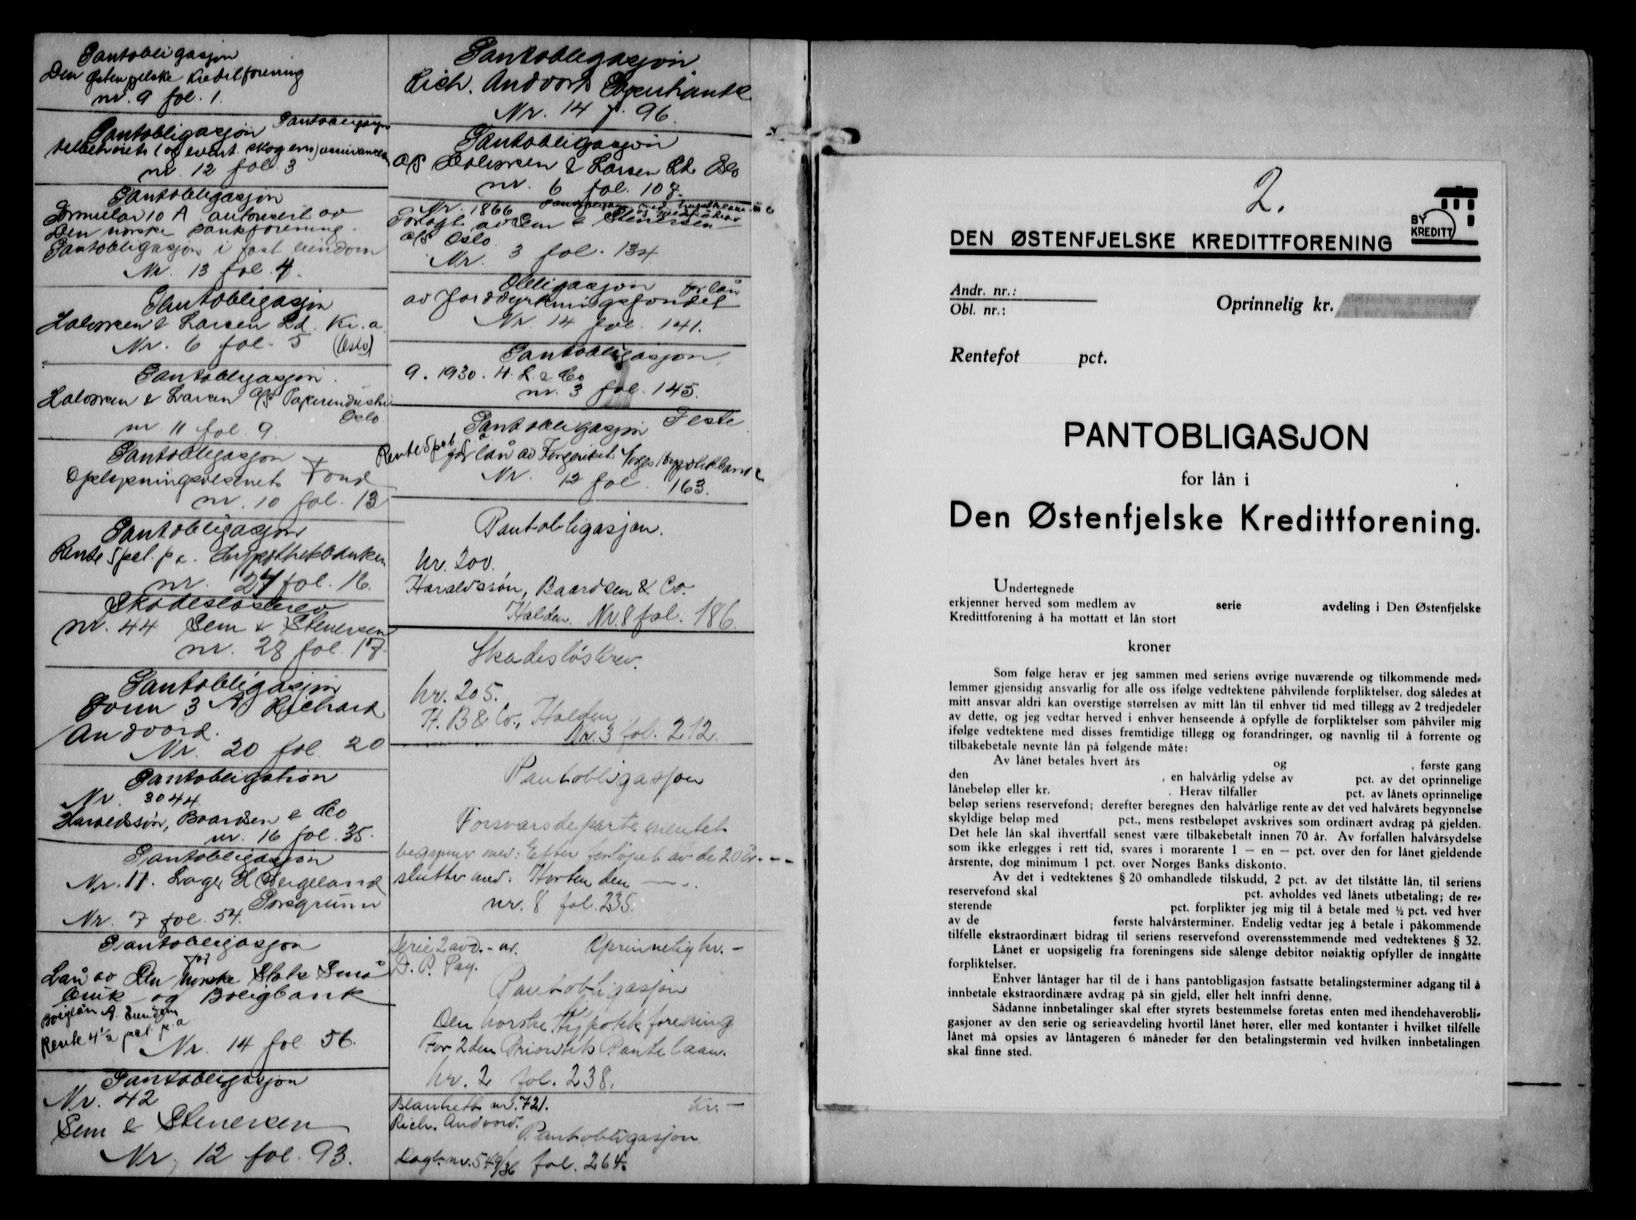 Pantobligasjon
Den Østenfjelske Kreditforening
nr. 9 fol. 1.
Pantobligasjon Pantobligasjon
(og event. skogens) assurance
nr. 12 fol. 3
Pantobligasjon
Formular 10 A autorisert av
Den norske Bankforening.
Pantobligasjon i fast eiendom
Nr. 13 fol. 4.
Pantobligasjon
Halvorsen & Larsen Ld. Kr.a.
Nr. 6 fol. 5 (Oslo)
Pantobligasjon.
Halvorsen & Larsen A/S Papirindustri
Oslo
nr. 11 fol. 9.
Pantobligasjon
Oplysningsvesenets Fond
nr. 10 fol. 13
Pantobligasjon
Rente 5 pct. p.a. Hypothekbanken
nr. 27 fol. 16.
Skadesløsbrev
nr. 44 Sem & Stenersen
nr. 28 fol. 17.
Pantobligasjon
Form 3 A Richard
Andvord.
Nr. 20 fol 20
Pantobligation
Nr. 3044
Haraldssøn, Baardsen & Co
nr. 16 fol. 35.
Pantobligasjon
Nr. 11. Lager H Bergeland
Porsgrunn
Nr. 7 fol. 54.
Pantobligasjon
for
Lån av Den Norske Stats Små-
bruk og Boligbank
Boliglån A. Eiendom
Rente 4½ pct. p.a
Nr. 14 fol 56.
Pantobligasjon
Nr. 42
Sem & Stenersen
Nr. 12 fol. 93.
Pantobligasjon
Rich. Andvord
Nr. 14 f. 96.
Pantobligasjon
A/S Halvorsen & Larsen Ld. Oslo
nr. 6 fol. 107.
Nr. 1866 Pantobligasjon
Forlagt av Sem & Stenersen
A/S Oslo
Nr. 3 fol. 134
Obligasjon for lån
av Jorddyrkningsfondet
Nr 14 fol. 141.
Pantobligasjon
9. 1930. H. L. & Co
nr. 3 fol. 145.
Pantobligasjon Feste
Rente 5 pct. for lån av Kongeriket Norges Hypotekbank
Nr. 12 fol. 163.
Pantobligasjon.
Nr. 200.
Haraldssøn, Baardsen & Co.
Halden. Nr. 8 fol. 186.
Skadesløsbrev.
Nr. 205.
H. B & Co. Halden
Nr. 3 fol. 212.
Pantobligasjon
Forsvarsdepartementet
begynner med: Efter forløpet av de 20 år. - - -
slutter med: Horten den — .
nr. 8 fol. 235.
Serie 2 avd. - nr. Oprinnelig kr. -
D. P. Pag.
Pantobligasjon
Den Norske Hypotekforening
For 2den Prioritets Pantelaan.
Nr. 2 fol. 238.
Blankett nr. 721. Kr. —
Rich. Andvord.
Pantobligasjon
Dagb.nr. 549/36 fol. 264.
2.
DEN ØSTENFJELSKE KREDITTFORENING
BY
KREDITT
Andr. nr.:
Obl. nr.:
Oprinnelig kr.
Rentefot pct.
PANTOBLIGASJON
for lån i
Den Østenfjelske Kredittforening.
Undertegnede
erkjenner herved som medlem av serie avdeling i Den Østenfjelske
Kredittforening å ha mottatt et lån stort
kroner
Som følge herav er jeg sammen med seriens øvrige nuværende og tilkommende med-
lemmer gjensidig ansvarlig for alle oss ifølge vedtektene påhvilende forpliktelser, dog således at
mitt ansvar aldri kan overstige størrelsen av mitt lån til enhver tid med tillegg av 2 tredjedeler
av dette, og jeg vedtar herved i enhver henseende å opfylle de forpliktelser som påhviler mig
ifølge vedtektene med disses fremtidige tillegg og forandringer, og navnlig til å forrente og
tilbakebetale nevnte lån på følgende måte:
Av lånet betales hvert års og , første gang
den , en halvårlig ydelse av pct. av det oprinnelige
lånebeløp eller kr. . Herav tilfaller pct. av lånets oprinnelige
beløp seriens reservefond; derefter beregnes den halvårlige rente av det ved halvårets begynnelse
skyldige beløp med pct., mens restbeløpet avskrives som ordinært avdrag på gjelden.
Det hele lån skal ihvertfall senest være tilbakebetalt innen 70 år. Av forfallen halvårsydelse
som ikke erlegges i rett tid, svares i morarente 1 — en — pct. over den for lånet gjeldende
årsrente, dog minimum 1 pct. over Norges Banks diskonto.
Av det i vedtektenes § 20 omhandlede tilskudd, 2 pct. av det tilståtte lån, til seriens
reservefond skal pct. avholdes ved lånets utbetaling; de re-
sterende pct. forplikter jeg mig til å betale med ½ pct. ved hver
av de første halvårsterminer. Endelig vedtar jeg å betale i påkommende
tilfelle ekstraordinært bidrag til seriens reservefond overensstemmende med vedtektenes § 32.
Lånet er uopsigelig fra foreningens side sålenge debitor nøiaktig opfyller de inngåtte
forpliktelser.
Enhver låntager har til de i hans pantobligasjon fastsatte betalingsterminer adgang til å
innbetale ekstraordinære avdrag på sin gjeld, eller helt innfri denne.
Sådanne innbetalinger skal efter styrets bestemmelse foretas enten med ihendehaverobli-
gasjoner av den serie og serieavdeling hvortil lånet hører, eller med kontanter i hvilket tilfelle
lånet må opsies av låntageren 6 måneder før den betalingstermin ved hvilken innbetalingen
skal finne sted.